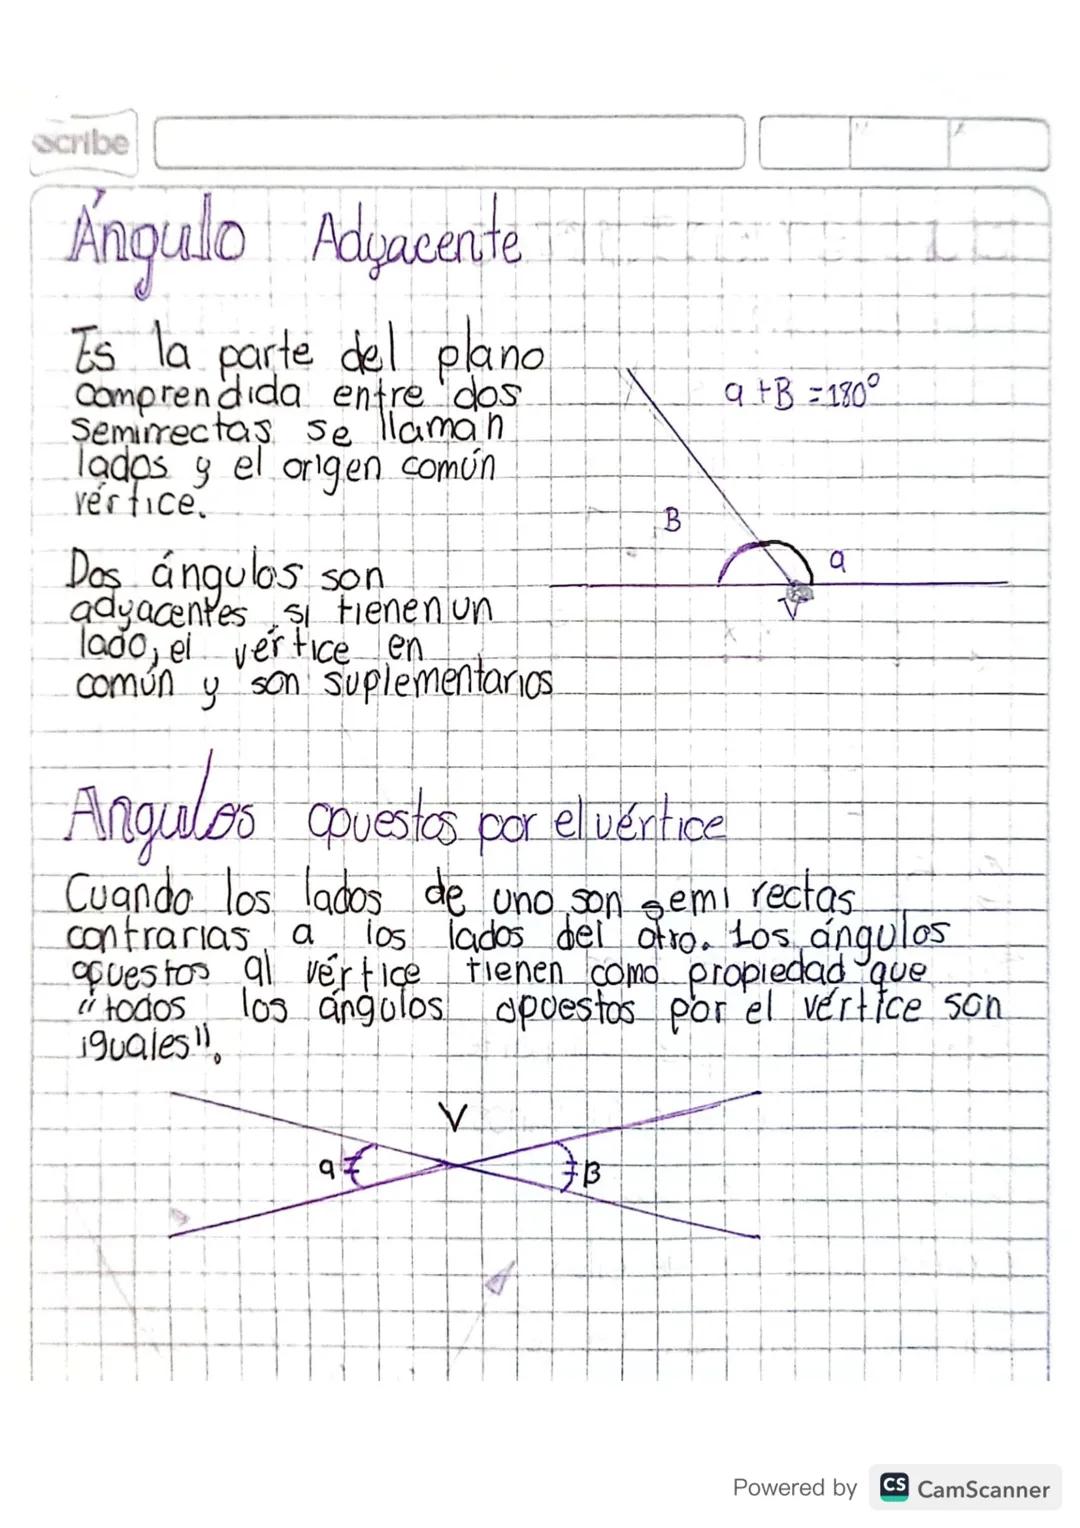 scribe
Ángulo Adyacente
Es la parte del plano
comprendida entre dos
semirrectas se llaman
lados y el origen común
vértice.
a + B = 180°
B
a
V
Dos ángulos son
adyacentes si tienen un
lado, el vértice en
común y son suplementarios
Angulos opuestos por el vértice
Cuando los lados de uno son semi rectas
contrarias a los lados del otro. Los ángulos
opuestos al vértice tienen como propiedad que
"todos los ángulos opuestos por el vértice son
iguales".
V
a
B
Powered by CS CamScanner